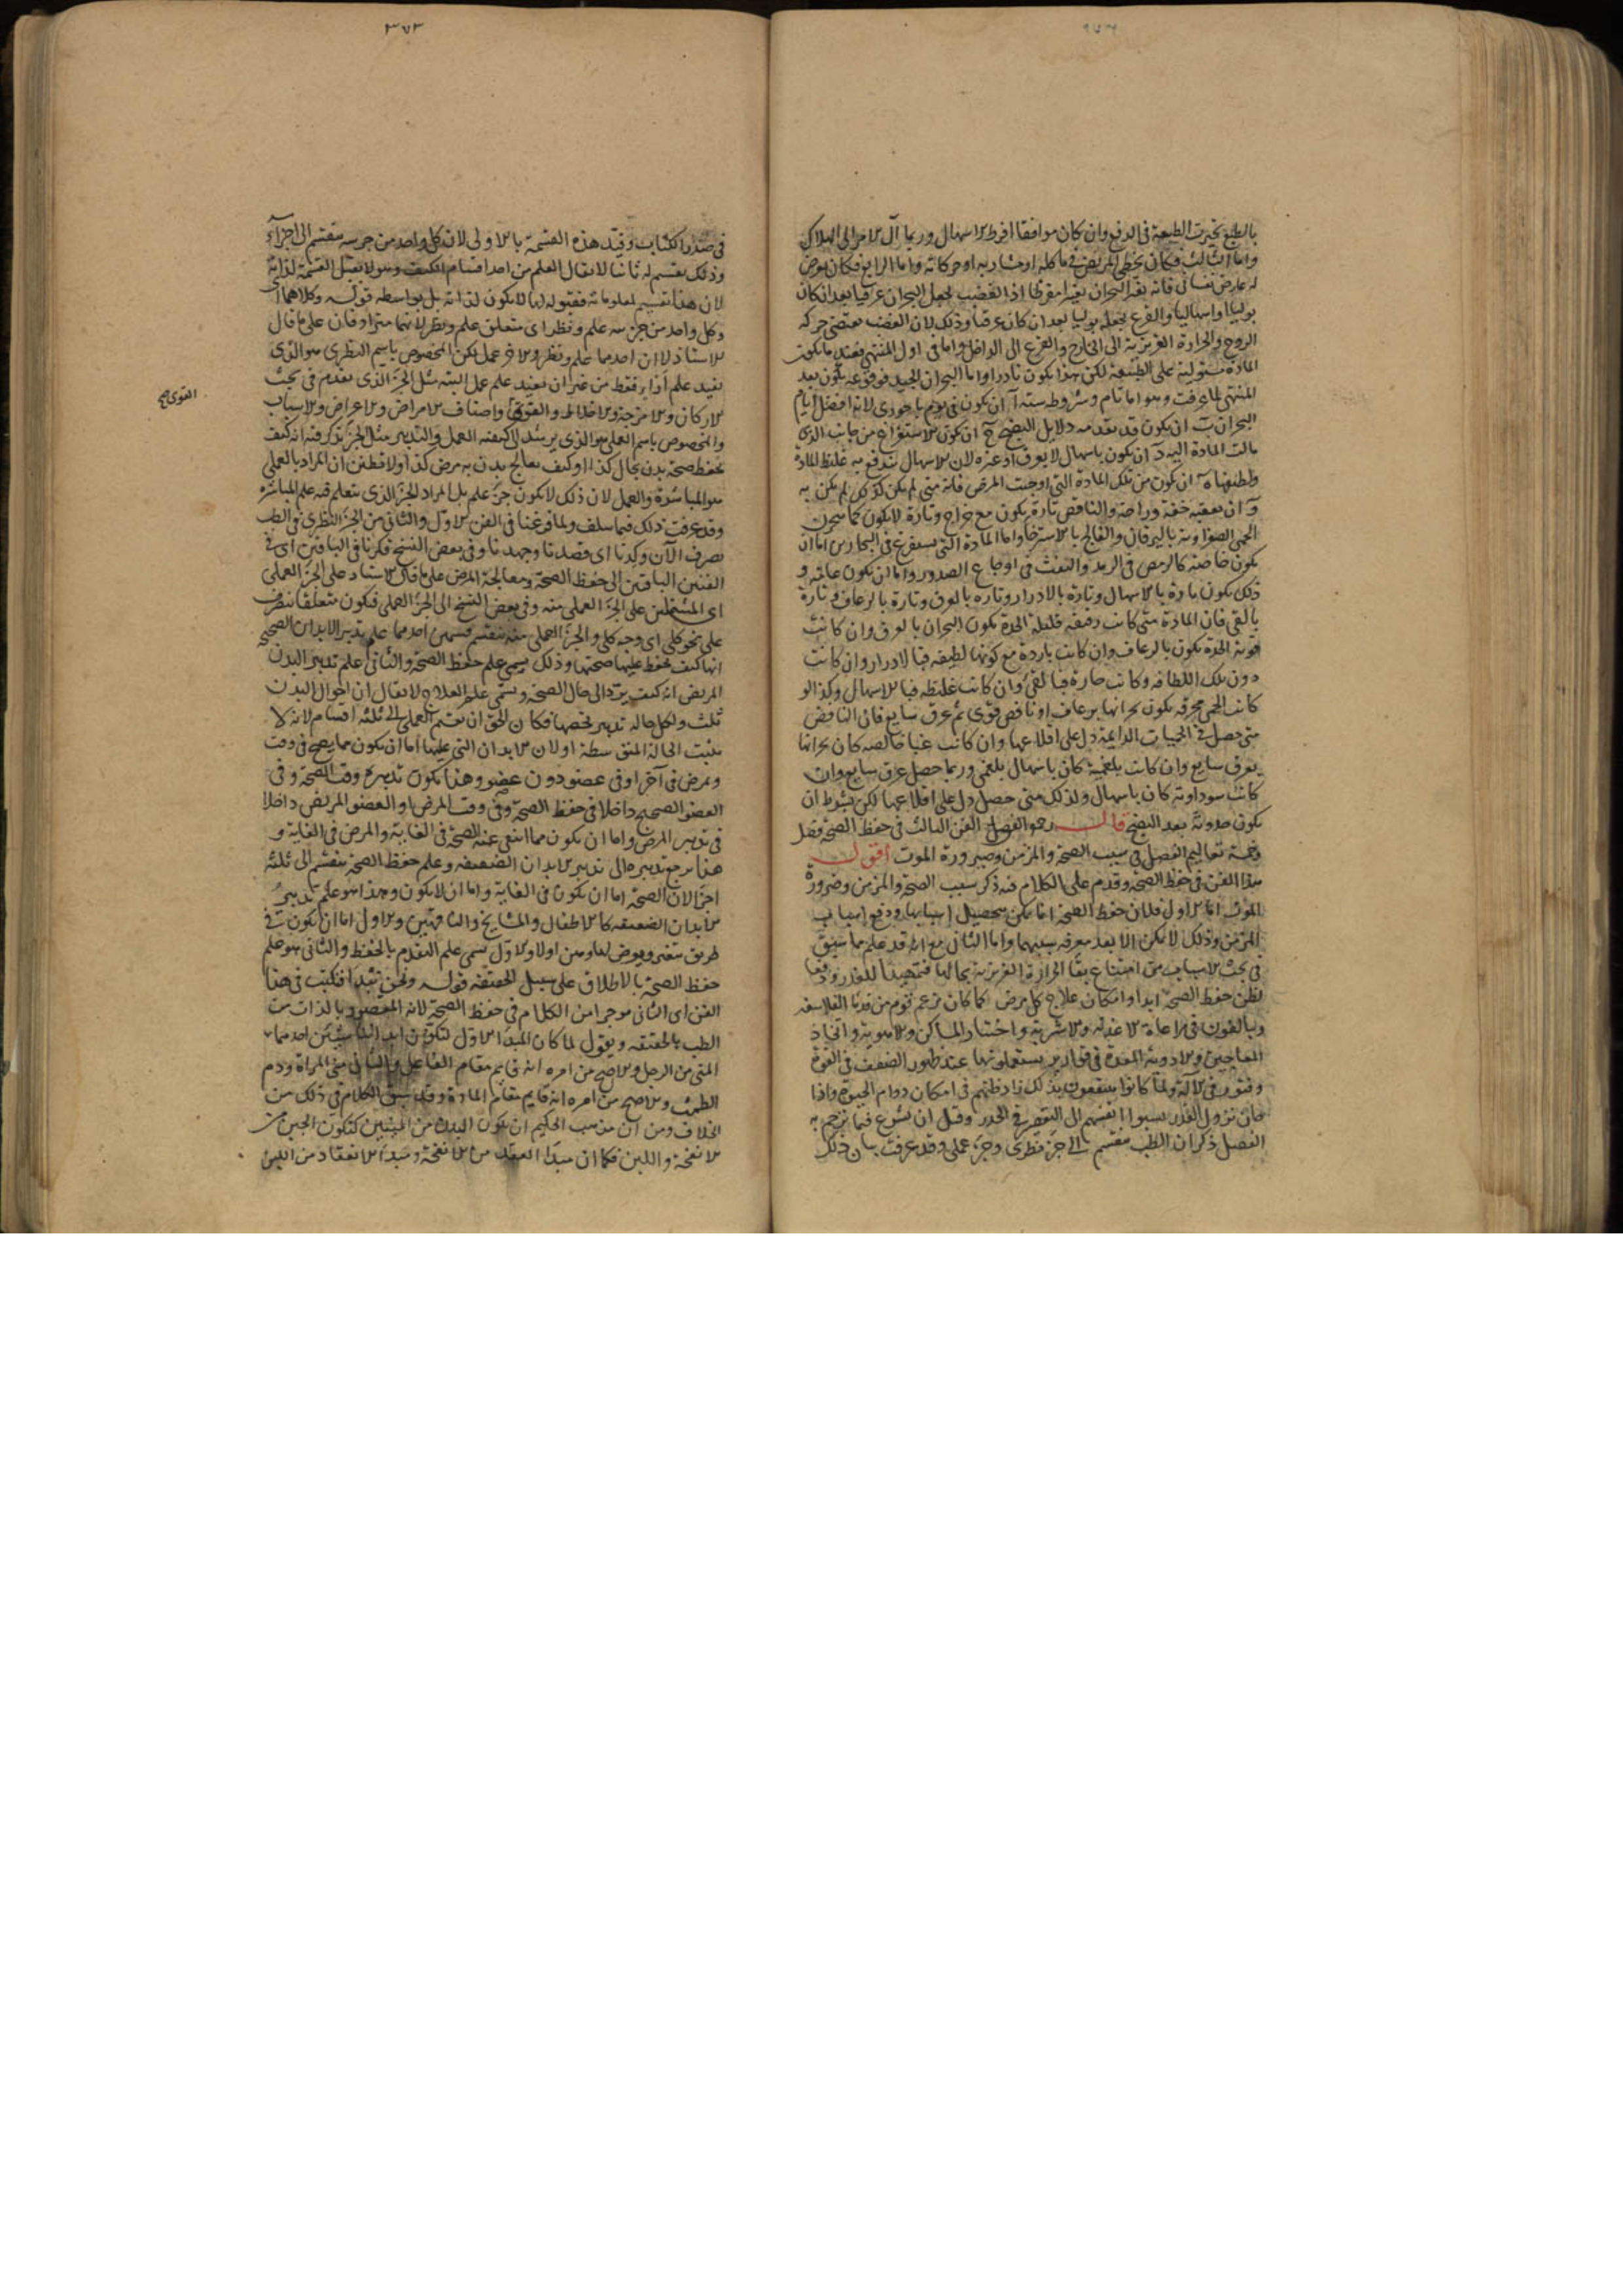 بالطبع تحيرت الطبيعة فى الدفع وان كان موافقا افرط الاسهال وربما آل الامر الى الهلاك
واما الثالث فكان يخطى المريض فى ماكله او مشاربه او حركاته واما الرابع فكان يعرض
له عارض نفسانى فانه يغير البحران تغيرا مفرطا اذ الغضب يجعل البحران عرقيا بعد ان كان
بوليا او اسهاليا والفزع يجعله بوليا بعد ان كان عرقيا وذلك لان الغضب يقتضى حركة
الروح والحرارة الغريزية الى الخارج والفزع الى الداخل واما فى اول المنتهى فعند ما يكون
المادة مستولية على الطبيعة لكن هذا يكون نادرا واما البحران الجيد فوقوعه يكون بعد
المنتهى لما عرفت وهو اما تام وشروطه ستة آ ان يكون فى يوم باحورى لانه افضل ايام
البحران ب ان يكون قد تقدمه دلايل النضج ج ان يكون الاستفراغ من جانب الذى
مالت المادة اليه د ان يكون باسهال لا بعرق او غيره لان الاسهال يندفع به غليظ المادة
ولطيفها ه ان يكون من تلك المادة التى اوجبت المرض فانه متى لم يكن كذلك لم يكن به
و ان يعقبه خفة وراحة والناقص تارة يكون مع خراج وتارة لا يكون كما سحرن
الحمى الصفراوية باليرقان والفالج بالاسترخا واما المادة التى تستفرغ فى البحارين اما ان
يكون خاصة كالرمص فى الرمد والنفث فى اوجاع الصدور واما ان يكون عامة و
ذلك يكون تارة بالاسهال وتارة بالادرار وتاره بالعرق وتارة بالرعاف وتارة
بالقى فان المادة متى كانت رقيقه قليلة الحدة يكون البحران بالعرق وان كانت
قوية الحدة يكون بالرعاف وان كانت باردة مع كونها لطيفه فبالادرار وان كانت
دون تلك اللطافه وكانت حارة فبالقى وان كانت غليظه فبالاسهال وكذا لو
كانت الحمى محرقه يكون بحرانها برعاف او نافض قوى ثم عرق سايع فان النافض
متى حصل فى الحميات الدايمة دل على اقلاعها وان كانت غبا خالصه كان بحرانها
بعرق سايع وان كانت بلغمية كان باسهال بلغمى وربما حصل عرق سايع وان
كانت سوداوية كان باسهال ولذلك متى حصل دل على اقلاعها لكن بشرط ان
يكون حدوثه بعد النضج قال رحمه الفصل الفن الثالث فى حفظ الصحة فصل
وخمسة تعاليم الفصل فى سبب الصحة والمرض وضرورة الموت اقول
هذا الفن فى حفظ الصحة وقدم على الكلام فيه ذكر سبب الصحة والمرض وضرورة
الموت اما الاول فلان حفظ الصحة انما يمكن بتحصيل اسبابها ودفع اسباب
المرض وذلك لا يمكن الا بعد معرفه سببهما واما الثانى مع انه قد علم مما سبق
فى بحث الاسباب من امتناع بقا الحرارة الغريزية بحالها فتمهيدا للعذر ودفعا
لظن حفظ الصحة ابدا او امكان علاج كل مرض كما كان زعم قوم من قدما الفلاسفه
ويبالغون فى مراعاة الاغذية والاشربة واختيار المساكن والاهوية واتخاذ
المعاجين والادوية المعدة فى قوارير يستعملونها عند ظهور الضعف فى القوة
وفتور فى الآلة ولما كانوا ينتفعون بذلك زاد ظنهم فى امكان دوام الحيوة واذا
حان نزول القدر نسبوا انفسهم الى التقصير فى الحذر وقبل ان نشرع فيما ترجم به
الفصل ذكر ان الطب ينقسم الى جزء نظرى وجزء عملى وقد عرفت بيان ذلك
٣٧٣
فى صدر الكتاب وقيد هذه القسمة بالاولى لان كل واحد من جزئيه ينقسم الى اجزآء
وذلك بقسمة ثانيا لا يقال العلم من احد اقسام الكيف وهو لا يقبل القسمة لذاته
لان هذا تقسيم لمعلوماته فقبوله لها لا يكون لذاته بل بواسطه قوله وكلاهما اى
وكل واحد من جزئيه علم ونظر اى متعلق علم ونظر لانهما مترادفان على ما قال
الاستاذ لا ان احدهما علم ونظر والاخر عمل لكن المخصوص باسم النظرى هو الذى
يفيد علم آراء فقط من غير ان يفيد علم عمل البته مثل الجزء الذى تقدم فى بحث
الاركان والامزجة والاخلاط والقوى واصناف الامراض والاعراض والاسباب
القوى صح
والمخصوص باسم العملى هو الذى يرشد الى كيفية العمل والتدبير مثل الجزء يذكر فيه انه كيف
يحفظ صحة بدن بحال كذا او كيف يعالج بدن به مرض كذا ولا تظنن ان المراد بالعملى
هو المباشرة والعمل لان ذلك لا يكون جزء علم بل المراد الجزء الذى يتعلم فيه علم المباشرة
وقد عرفت ذلك فيما سلف ولما فرغنا فى الفن الاول والثانى من الجزء النظرى فى الطب
نصرف الآن وكدنا اى قصدنا وجهدنا وفى بعض النسخ فكرنا فى الباقيين اى فى
الفنين الباقيين الى حفظ الصحة ومعالجة المرض على ما قال الاستاد على الجزء العملى
اى المشتملين على الجزء العملى منه وفى بعض النسخ الى الجزء العملى فيكون متعلقا بنصرف
على نحو كلى اى وجه كلى والجزء العملى منه ينقسم قسمين احدهما علم تدبير الابدان الصحيحة
انها كيف يحفظ عليها صحتها وذلك يسمى علم حفظ الصحة والثانى علم تدبير البدن
المريض انه كيف يرد الى حال الصحة ويسمى علم العلاج لا يقال ان احوال البدن
ثلث ولكل حاله تدبير يخصها فكان الحق ان يقسم العملى الى ثلثة اقسام لانه لا
يثبت الحالة المتوسطة اولان الابدان التى عليها اما ان يكون مما يصح فى وقت
ويمرض فى آخر او فى عضو دون عضو وهذا يكون تدبيره وقت الصحة وفى
العضو الصحيح داخلا فى حفظ الصحة وفى وقت المرض او العضو المريض داخلا
فى تدبير المرض واما ان يكون مما انتفى عنه الصحة فى الغاية والمرض فى الغاية و
هذا يرجع تدبيره الى تدبير الابدان الضعيفه وعلم حفظ الصحة ينقسم الى ثلثه
اجزا لان الصحة اما ان يكون فى الغاية واما ان لا يكون وهذا هو علم تدبير
الابدان الضعيفه كالاطفال والمشايخ والناقهين والاول اما ان يكون فى
طريق متغير ويعرض لعارض اولا والاول يسمى علم التقدم بالحفظ والثانى هو علم
حفظ الصحة بالاطلاق على سبيل الحقيقه قوله ونحن نبتدا فنكتب فى هذا
الفن اى الثانى موجزا من الكلام فى حفظ الصحة لانه المقصود بالذات من
الطب بالحقيقه ويقول لما كان المبدا الاول لتكون ابداننا شيئين احدهما
المنى من الرجل والاصح من امره انه قايم مقام الفاعل والثانى منى المراة ودم
الطمث والاصح من امره انه قايم مقام المادة وقد سبق الكلام فى ذلك من
الخلاف ومن ان مذهب الحكيم ان يكون البدن من المنيين كتكون الجبن من
الانفحة واللبن فكما ان مبدا العقد من الانفحة ومبدا الانعقاد من اللبن